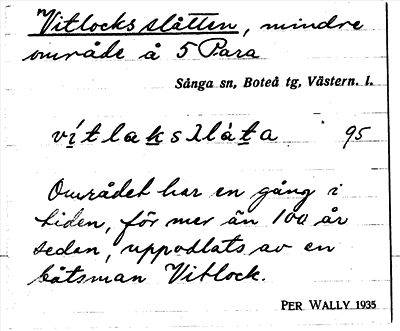 "Vitlocksslåtten, mindre
område å 5 Para
Sånga sn, Boteå tg, Västern. l.
vítlakslláta 95
Området har en gång i
tiden, för mer än 100 år
sedan, uppodlats av en
båtsman Vitlock.
PER WALLY 1935